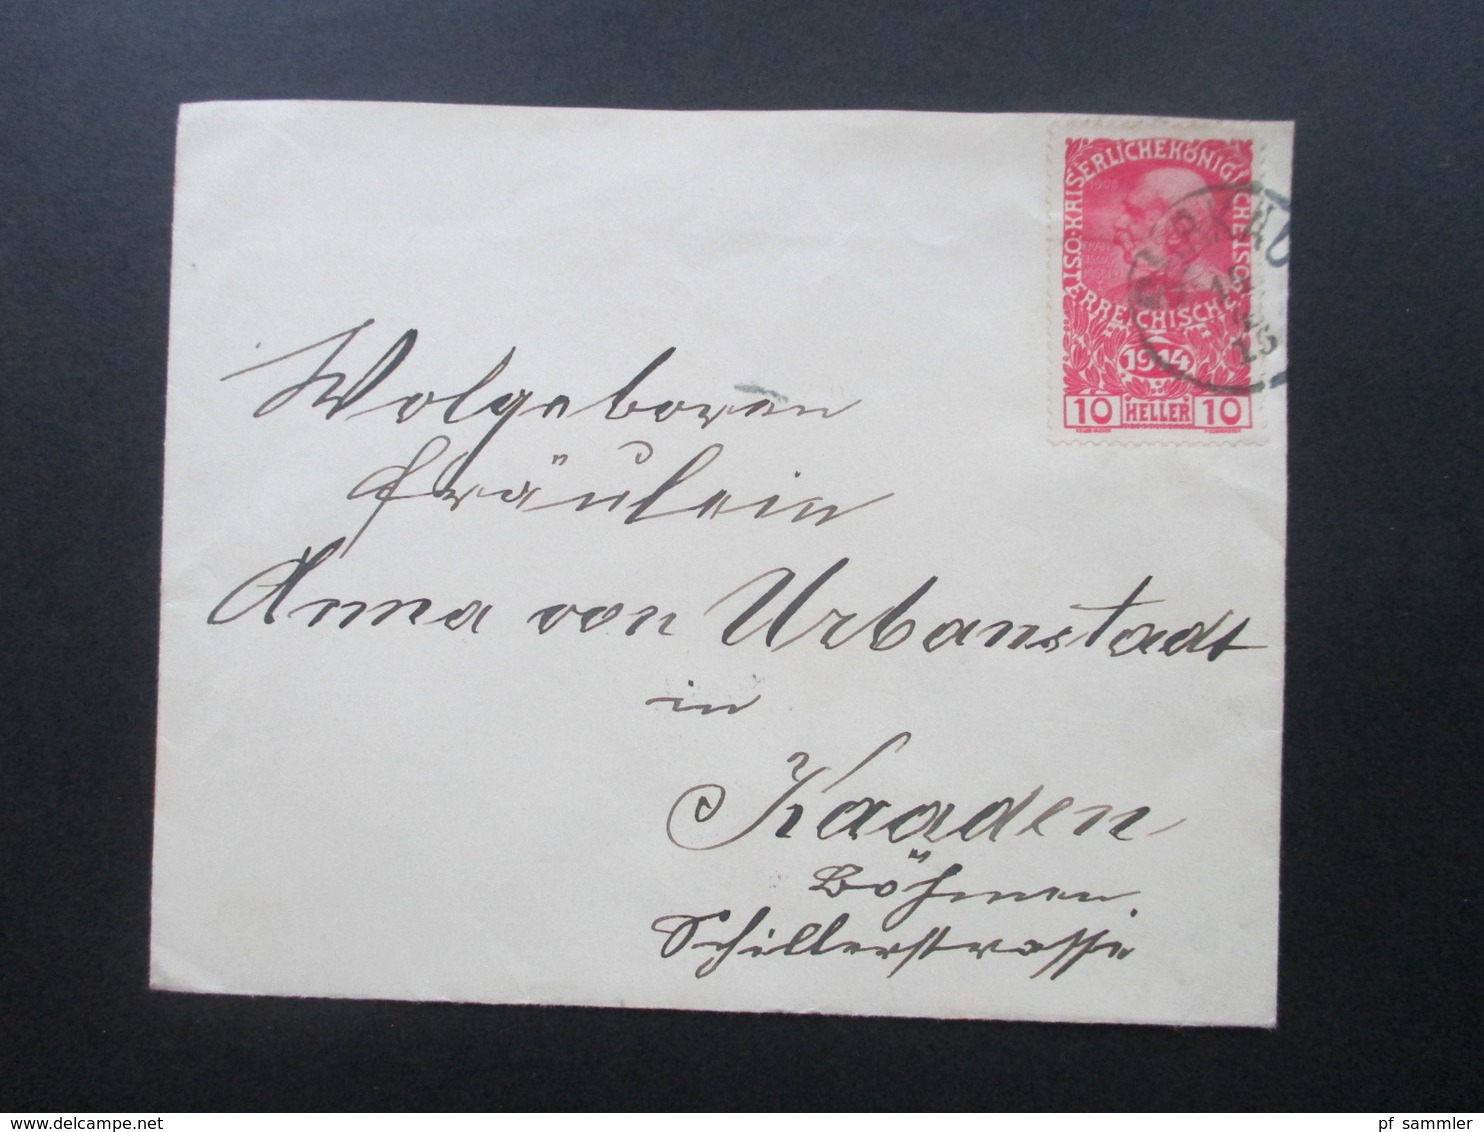 KAISERLICHE KÖNIGLICHE ÖSTERREICHISCHE
1908
1914
10 HELLER 10
RKAU
15
Wolgeboren
Fräulein
Anna von Urbanstadt
in
Kaaden
Böhmen.
Schillerstrasse
pf_sammler